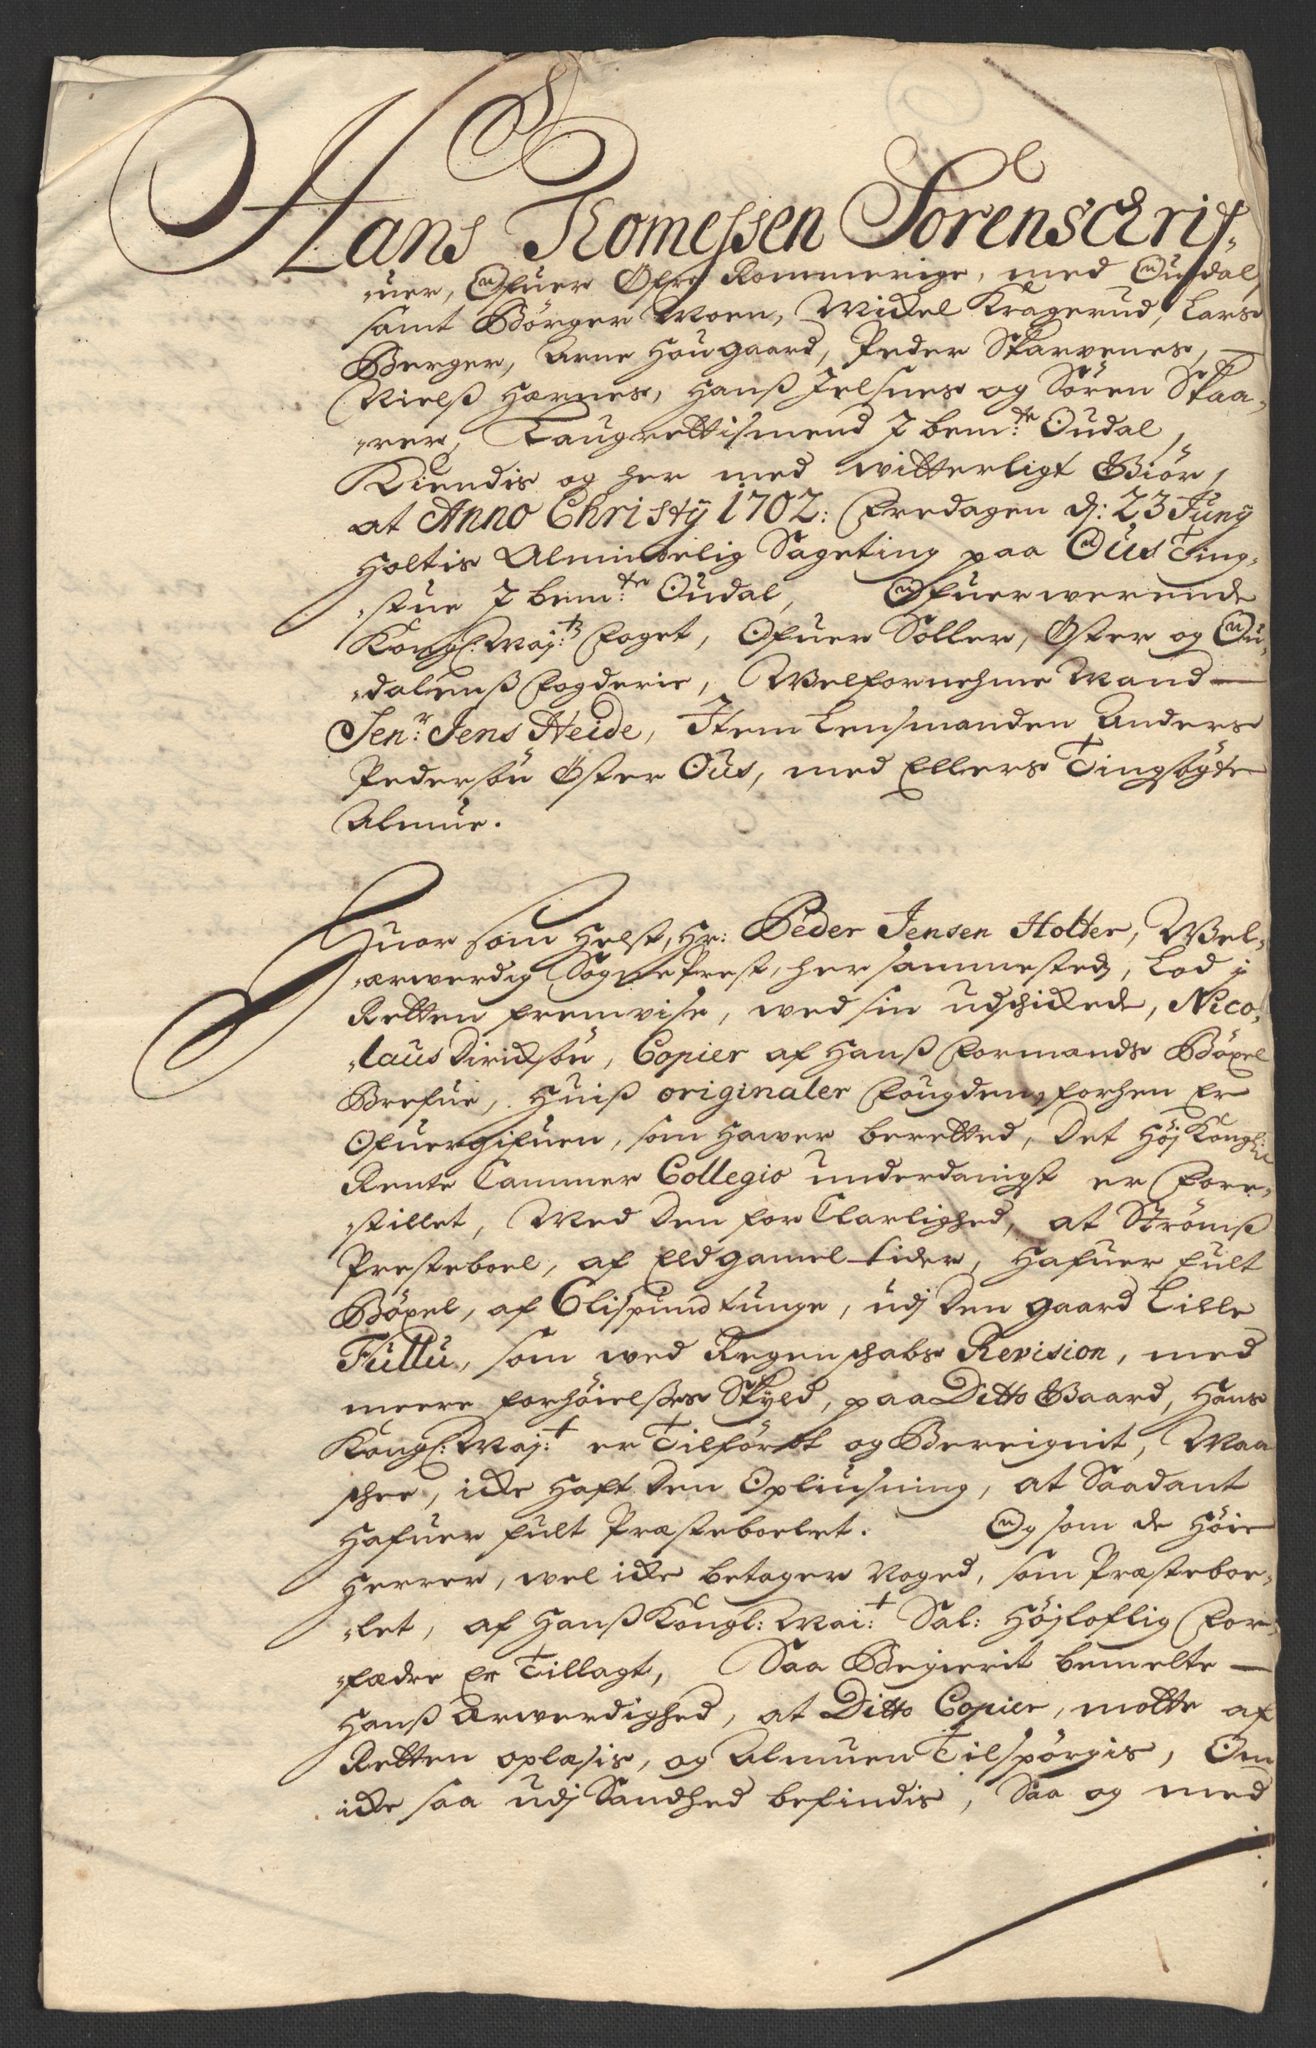 Hans Thomessen Sorenschrif-
uer, Ofuer Øfre Rommerige, med Oudal,
samt Børger Moen, Mickel Kragerud, Lars
Berger, Arne Hougaard, Peder Skarpenes,
Nielß Hernes, Hanß Jelsnes og Søren Skaa-
rer, Laugrettismend J bem:te Oudal,
Kiendis og her med witterligt Giør,
at Anno Christÿ 1702: Fredagen d: 23 Junÿ
Holtis Almindelig Sageting paa Ous Ting-
stue J bem:te Oudal, Ofuerwerende
Kongl: Maj:ts Foget, Ofuer Soller, Øster og Ou-
dalenß Fogderie, Welfornehme Mand
Sen:r Jens Heide, Item Lensmanden Anders
Pedersøn Øster Ous, med Ellers Tingsøgte
Almue.
Huor som Helst, Hr: Peder Jensen Holter, Wel-
ærwerdig Sogne Prest, her sammesteds, Lod j
Retten fremvise, wed sin udschickede, Nico-
laus Dirichsøn, Copier af Hanß Formands Bøxel
Brefue, Huiß originaler Fougden, forhen Er
Ofuergifuen, som Hawer beretted, Det Høj Kongl:
Rente Cammer Collegio underdanigst er Fore-
stillet, Med Den for Clarlighed, at Strømß
Presteboel, af Eld gamel tider, Hafuer fult
Bøxel, af 6 Lispund tunge, udj Den gaard Lille
Fullu, som wed Regenschabs Revision, med
meere forhøielses Skyld, paa Ditto Gaard, Hans
Kongl: Maj:t er Tilført og Bereignit, Maa
schee, icke Haft Den Opliusning, at Saadant
Hafuer fult Præsteboelet. Og som de Høie
Herrer, wel icke betager Noged, som Præsteboe-
let, af Hanß Kongl: Mai:t Sal: Højloflig For-
fædre Er Tillagt, Saa Begierit bemelte
Hanß Ærwerdighed, at Ditto Copier, motte af
Retten oplæsis, og Almuen Tilspørgis, Om
icke saa udj Sandhed befindis, Saa og med